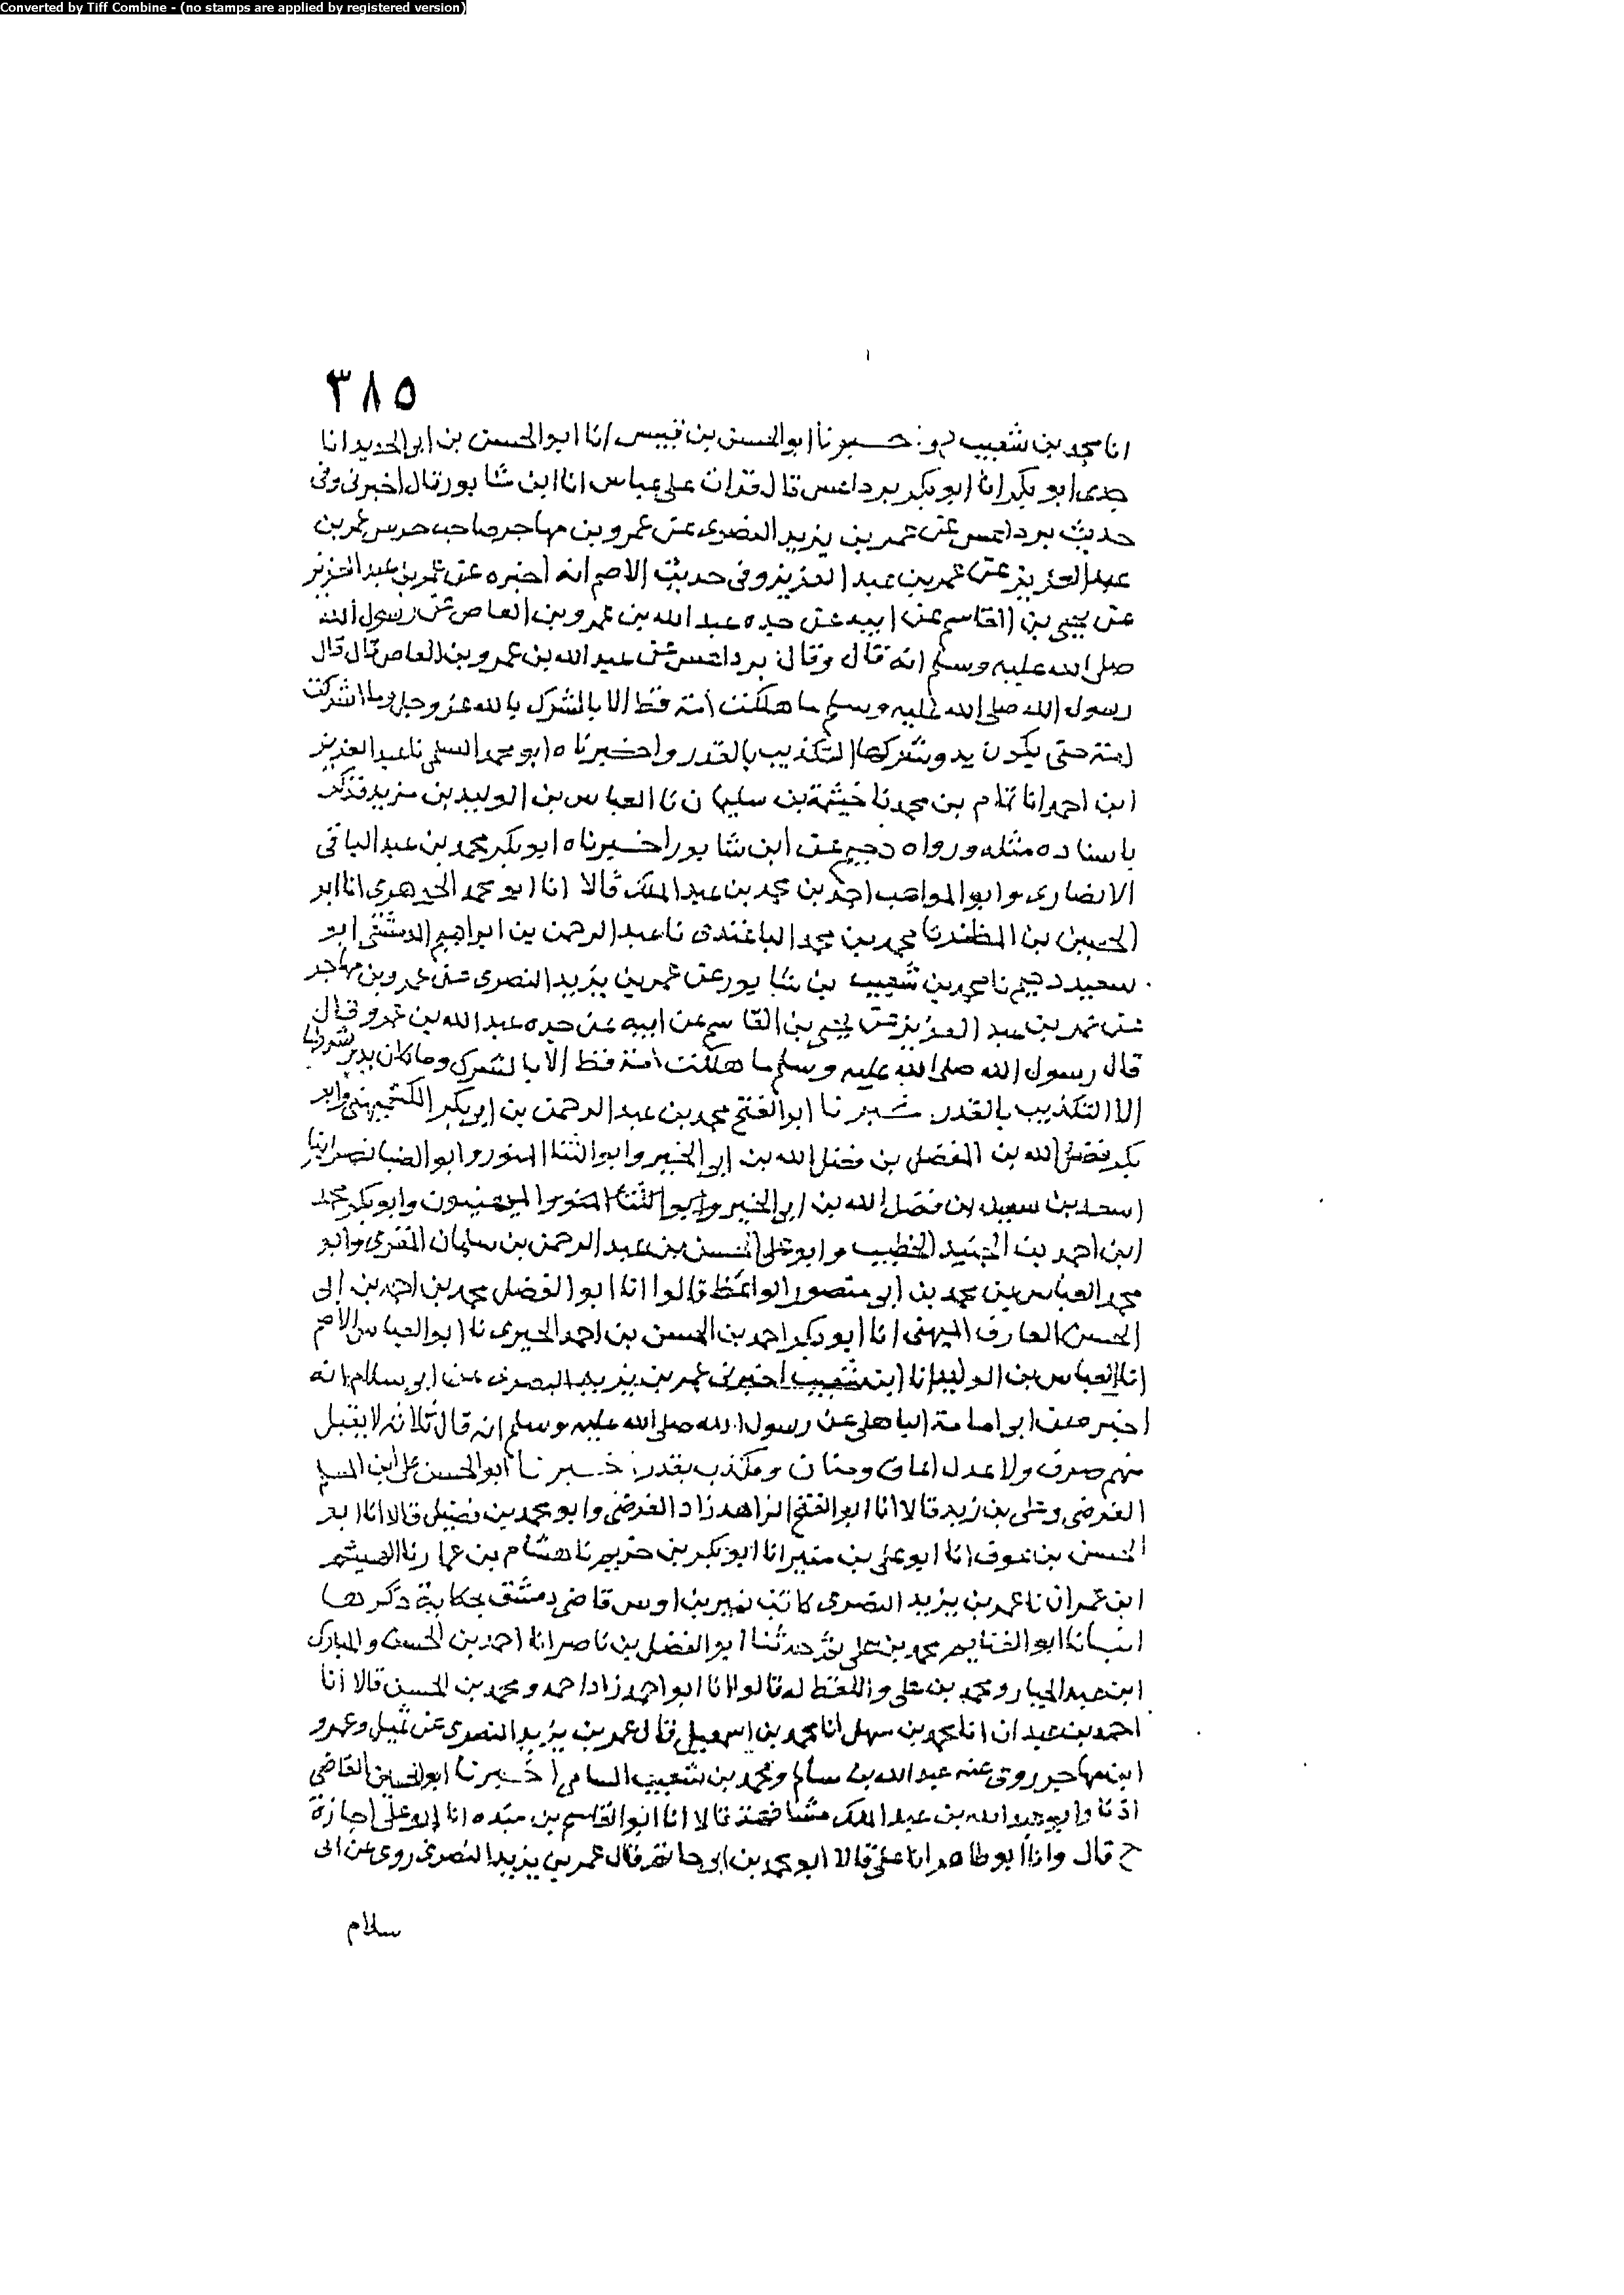 Converted by Tiff Combine - (no stamps are applied by registered version)
٣٨٥
انا محمد بن شعيب ح و خبرنا ابو الحسن بن قبيس انا ابو الحسن بن ابى الحديد انا
جدى ابو بكر انا ابو بكر برداعس قال قرات على عباس انا ابن شابور قال اخبرنى وفى
حديث برداعس عن عمر بن يزيد النصرى عن عمرو بن مهاجر صاحب حرس عمر بن
عبد العزيز عن عمر بن عبد العزيز وفى حديث الاصم انه اخبره عن عمر بن عبد العزيز
عن يحيى بن القاسم عن ابيه عن جده عبد الله بن عمرو بن العاص عن رسول الله
صلى الله عليه وسلم انه قال وقال برداعس عن عبد الله بن عمرو بن العاص قال قال
رسول الله صلى الله عليه وسلم ما هلكت امة قط الا بالشرك بالله عز وجل وما اشركت
امة حتى يكون بدو شركها التكذيب بالقدر واخبرناه ابو محمد السلمى نا عبد العزيز
ابن احمد انا تمام بن محمد نا خيثمة بن سليمان نا العباس بن الوليد بن مزيد فذكر
باسناده مثله ورواه دحيم عن ابن شابور اخبرناه ابو بكر محمد بن عبد الباقى
الانصارى وابو المواهب احمد بن محمد بن عبد الملك قالا انا ابو محمد الجوهرى انا ابو
الحسين بن المظفر نا محمد بن محمد الباغندى نا عبد الرحمن بن ابراهيم الدمشقى ابو
سعيد دحيم نا محمد بن شعيب بن شابور عن عمر بن يزيد النصرى عن عمرو بن مهاجر
عن عمر بن عبد العزيز عن يحيى بن القاسم عن ابيه عن جده عبد الله بن عمرو قال
قال رسول الله صلى الله عليه وسلم ما هلكت امة قط الا بالشرك وما كان بدو شركها
الا التكذيب بالقدر خبرنا ابو الفتح محمد بن عبد الرحمن بن ابى بكر الكشميهنى وابو
بكر فضل الله بن المفضل بن فضل الله بن ابى الخير وابو الثنا المنور وابو الضيا نصر ابنا
اسعد بن سعيد بن فضل الله بن ابى الخير وابو الثنا المنور الميهنيون وابو بكر محمد
ابن احمد بن الجنيد الخطيب وابو على الحسن بن عبد الرحمن بن سليمان المقرى وابو
محمد العباس بن محمد بن ابى منصور الواعظ قالوا انا ابو الفضل محمد بن احمد بن ابى
الحسن العارف الميهنى انا ابو بكر احمد بن الحسن بن احمد الحيرى نا ابو العباس الاصم
انا العباس بن الوليد انا ابن شعيب اخبرنى عمر بن يزيد البصرى عن ابى سلام انه
اخبر عن ابى امامة الباهلى عن رسول الله صلى الله عليه وسلم انه قال ثلاثة لا يقبل
منهم صرف ولا عدل العاق ومنان ومكذب بقدر خبرنا ابو الحسن على ابن المسلم
الفرضى وعلى بن زيد قالا انا ابو الفتح الزاهد زاد الفرضى وابو محمد بن فضيل قالا انا ابو
الحسن بن عوف انا ابو على بن منير انا ابو بكر بن خريم نا هشام بن عمار نا الهيثم
ابن عمران نا عمر بن يزيد النصرى كاتب نمير بن اوس قاضى دمشق بحكاية ذكرها
انبانا ابو الغنايم محمد بن على ثم حدثنا ابو الفضل بن ناصر انا احمد بن الحسن والمبارك
ابن عبد الجبار ومحمد بن على واللفظ له قالوا انا ابو احمد زاد احمد ومحمد بن الحسن قالا انا
احمد بن عبدان انا محمد بن سهل انا محمد بن اسمعيل قال عمر بن يزيد النصرى عن نميل وعمرو
ابن مهاجر روى عنه عبد الله بن سالم ومحمد بن شعيب السامى اخبرنا ابو الحسين القاضى
اذنا وابو عبد الله بن عبد الملك مشافهة قالا انا ابو القاسم بن منده انا ابو على اجازة
ح قال وانا ابو طاهر انا على قالا ابو محمد بن ابى حاتم قال عمر بن يزيد النصرى روى عن ابى
سلام